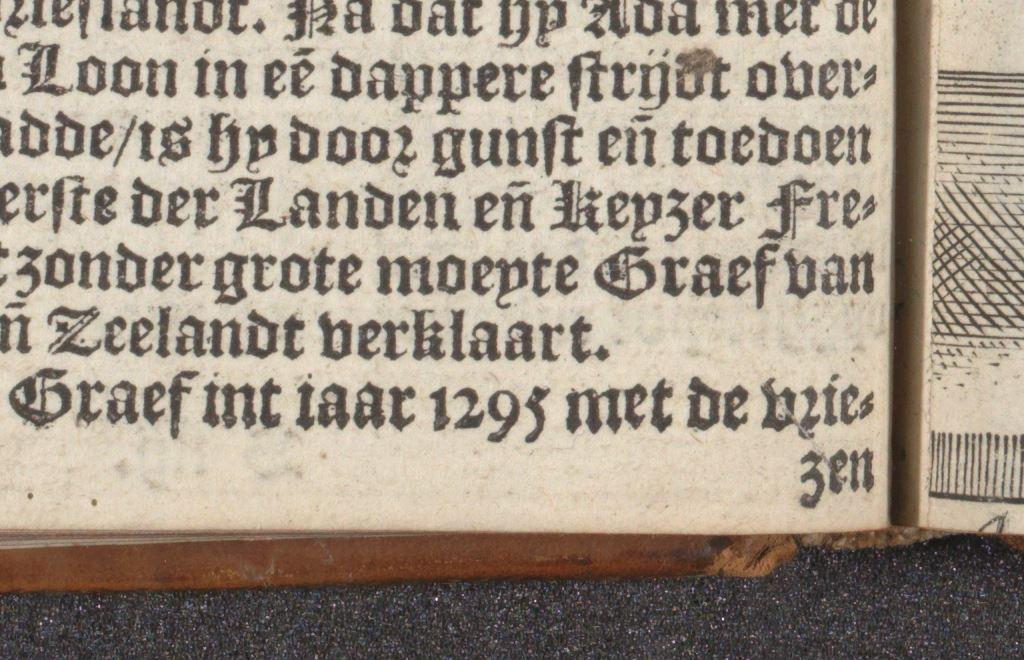 rieslandt. Na dat hy Ada met de
Loon in eē dappere strijdt over-
adde/is hy door gunst eñ toedoen
erste der Landen eñ Keyzer Fre-
t zonder grote moeyte Graef van
ñ Zeelandt verklaart.
Graef int iaar 1295 met de vrie-
zen